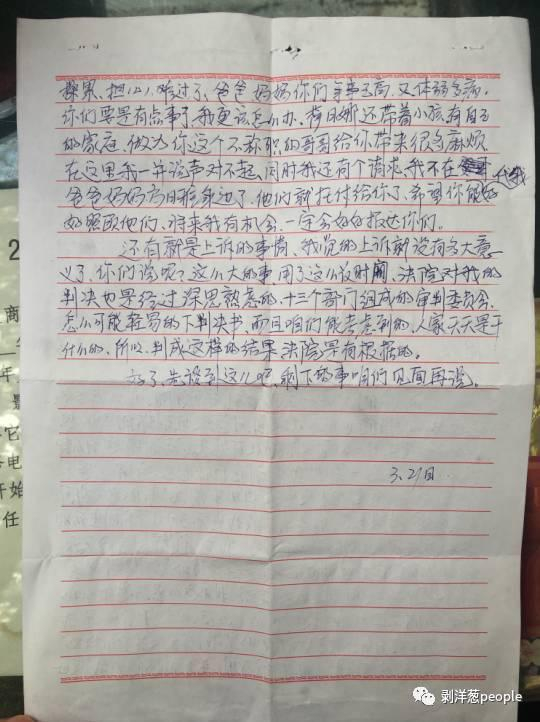 操累、担心、难过了、爸爸妈妈你们年事已高、又体弱多病、
你们要是有点事了、我更该怎么办、荷日娜还带着小孩有自己
的家庭、做为你这个不称职的哥哥给你带来很多麻烦
在这里我一并说声对不起、同时我还有个请求、我不在
爸爸妈妈 身边了、他们就托付给你了、希望你能好 代我
好照顾他们、将来我有机会、一定会好好报达你们。
还有就是上诉的事情、我觉的上诉就没有多大意
义了、你们说呢？这么大的事、用了这么长时间、法院对我的
判决也是经过深思熟虑的、十三个部门组成的审判委员会、
怎么可能轻易的下判决书、而且咱们能考虑到的人家天天是干
什么的、所以、判成这样的结果法院是有根据的。
好了、先谈到这儿吧、剩下的事咱们见面再说。
3、21日
2
商
年
它
电
开始
任
剥洋葱people